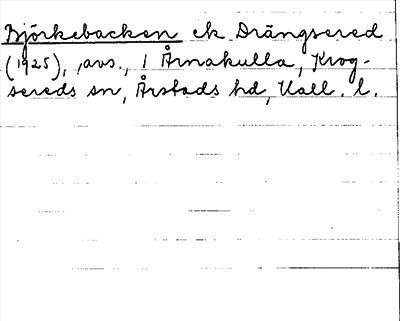 Björkebacken ek Drängsered
(1925), avs., 1 Årnakulla, Krog-
sereds sn, Årstads hd, Hall. l.